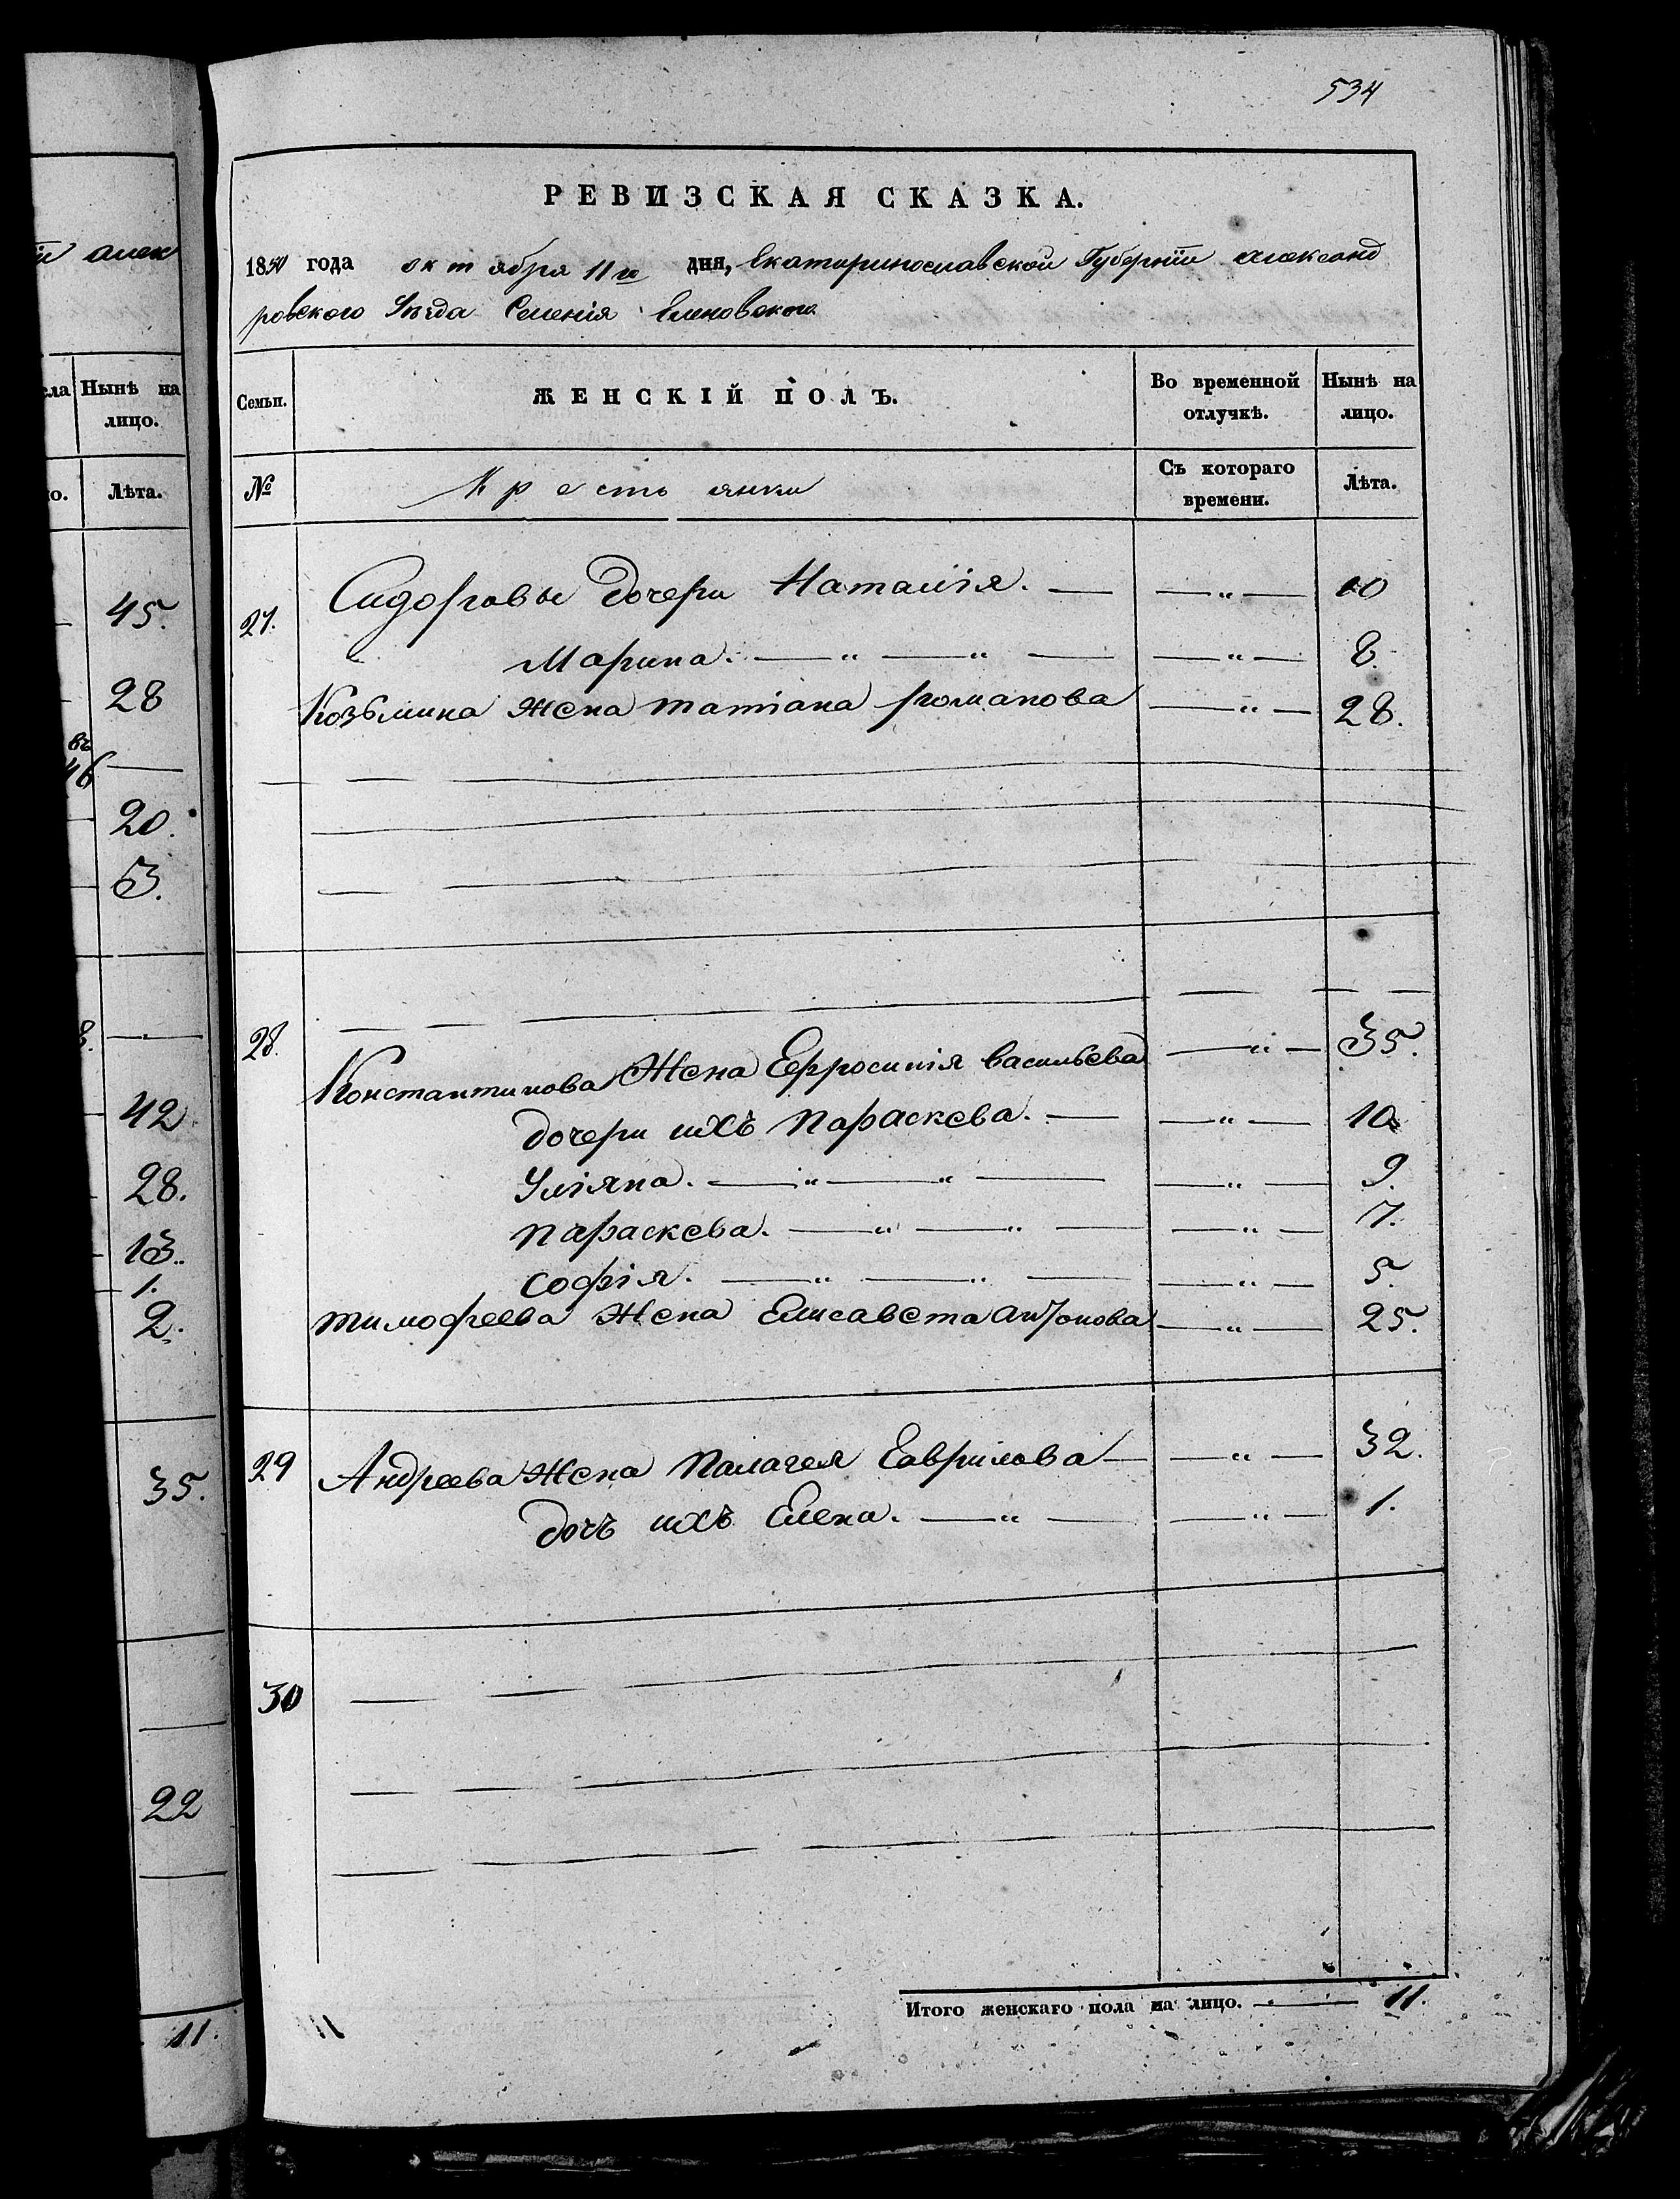 534
РЕВИЗСКАЯ СКАЗКА.
1850 года октября 11го дня, Екатеринославской Губернїи александ
ровского Уезда Селенія Еленовского
ій алек
Семьи.
ЖЕНСКІЙ ПОЛЪ.
Во временной отлучкѣ.
Нынѣ на лицо.
№
Крестьянки
Съ котораго времени.
Лѣта.
27. Сидоровы дочери Наталія. — — „ — 10
Марина. — „ — „ — — „ — 8.
Козьмина жена татіана романова — „ — 28.
28. Константинова Жена Ефросинія васильева — „ — 35.
дочери ихъ Параскева. — — „ — 10
Уліяна. — „ — „ — — „ — 9.
параскева. — „ — „ — — „ — 7.
софія. — „ — „ — — „ — 5.
тимофеева Жена Елисавета анѳонова — „ — 25.
29 Андреева Жена Палагея Гаврилова — — „ — 32.
дочъ ихъ Елена. — „ — — „ — 1.
30
Итого женскаго пола на лицо. — 11.
ела
Нынѣ на лицо.
о.
Лѣта.
45.
28
въ
46
20.
3.
8.
42
28.
13.
1.
2.
35.
22
11.